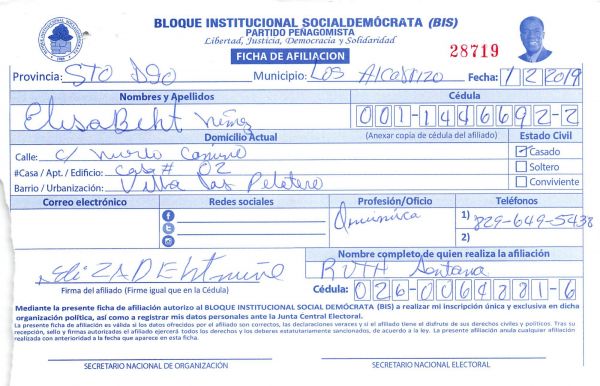 BLOQUE INSTITUCIONAL SOCIALDEMÓCRATA (BIS)
PARTIDO PEÑAGOMISTA
Libertad, Justicia, Democracia y Solidaridad
FICHA DE AFILIACION
28719
Provincia: STO DGO Municipio: Los Alcarrizo Fecha: 1/2/2019
Nombres y Apellidos Cédula
ElisaBeht Núñez 001-1446692-2
Domicilio Actual (Anexar copia de cédula del afiliado) Estado Civil
Calle: c/ nuevo Camino Casado
#Casa / Apt. / Edificio: Casa # 02 Soltero
Barrio / Urbanización: Villa Las Peletero Conviviente
Correo electrónico Redes sociales Profesión/Oficio Teléfonos
Quimica 1) 829-649-5438
2)
Nombre completo de quien realiza la afiliación
RUTH Santana
Firma del afiliado (Firme igual que en la Cédula) Cédula: 026-0064881-6
Mediante la presente ficha de afiliación autorizo al BLOQUE INSTITUCIONAL SOCIAL DEMÓCRATA (BIS) a realizar mi inscripción única y exclusiva en dicha
organización política, así como a registrar mis datos personales ante la Junta Central Electoral.
La presente ficha de afiliación es válida si los datos ofrecidos por el afiliado son correctos, las declaraciones veraces y si el afiliado tiene el disfrute de sus derechos civiles y políticos. Tras su
recepción, sello y firmas autorizadas el afiliado ejercerá todos los derechos y los deberes estatutariamente sancionados, de acuerdo a la ley. La presente afiliación anula cualquier afiliación
realizada con anterioridad a la fecha que aparece en esta ficha.
SECRETARIO NACIONAL DE ORGANIZACIÓN SECRETARIO NACIONAL ELECTORAL